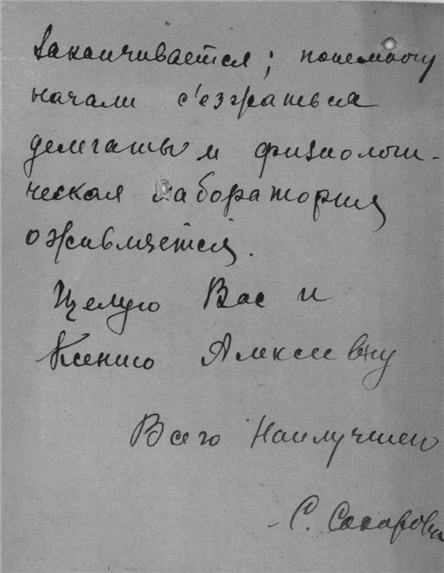 Заканчивается; понемногу
начали с'езжаться
делегаты и физиологи-
ческая лаборатория
оживляется.
Целую Вас и
Ксению Алексеевну
Всего Наилучшего
С. Сахарова